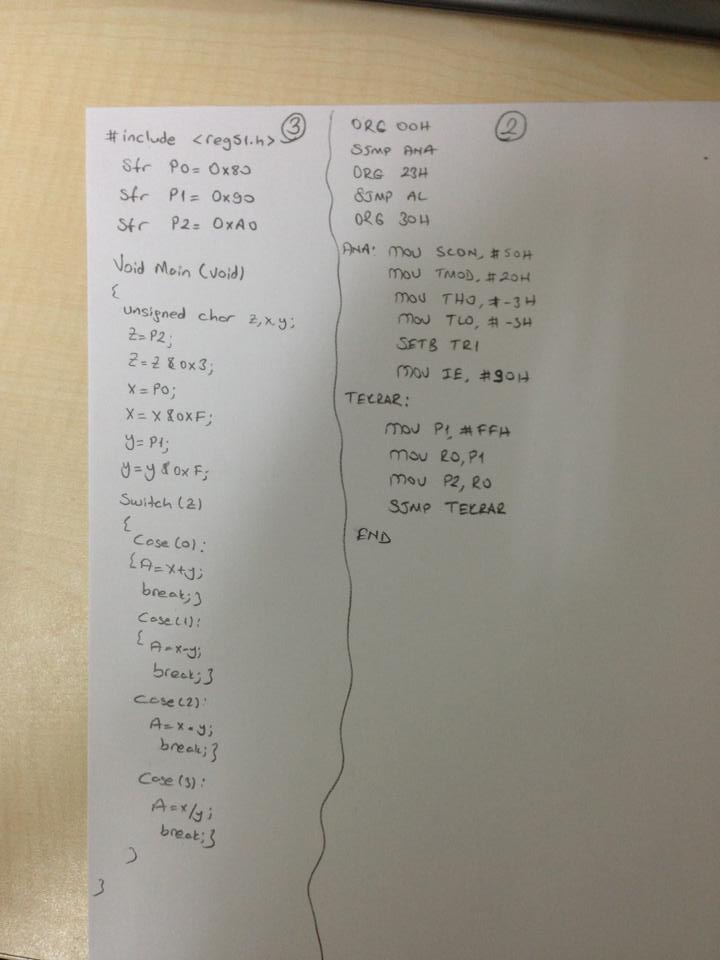 ③
#include <reg51.h>
Sfr P0 = 0x80
Sfr P1 = 0x90
Sfr P2 = 0xA0
Void Main (void)
{
unsigned char z,x,y;
Z=P2;
Z=Z&0x3;
X=P0;
X=X&0xF;
y=P1;
y=y&0xF;
Switch(2)
{
Case(0):
{A=x+y;
break;}
Case(1):
{A=x-y;
break;}
Case(2):
A=x*y;
break;}
Case(3):
A=x/y;
break;}
}
}
②
ORG 00H
SJMP ANA
ORG 23H
SJMP AL
ORG 30H
ANA: MOV SCON, #50H
MOV TMOD, #20H
MOV TH0, #-3H
MOV TL0, #-3H
SETB TR1
MOV IE, #90H
TEKRAR:
MOV P1, #FFH
MOV R0, P1
MOV P2, R0
SJMP TEKRAR
END